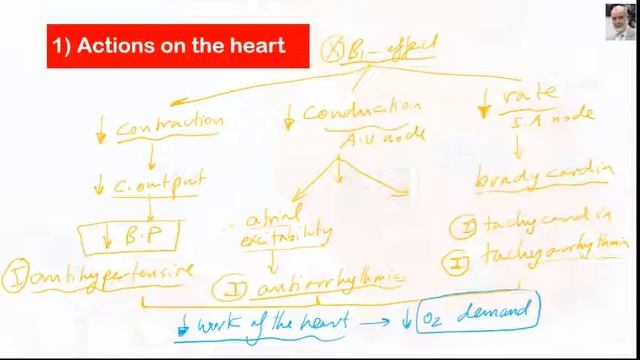 1) Actions on the heart
(X) B1 - effect
↓ contraction
↓ C.output
↓ B.P
(I) antihypertensive
↓ Conduction
A.V node
atrial
excitability
(I) antiarrhythmic
↓ rate
S.A node
bradycardia
(I) tachycardia
(I) tachyarrhythmia
↓ work of the heart → ↓ O2 demand